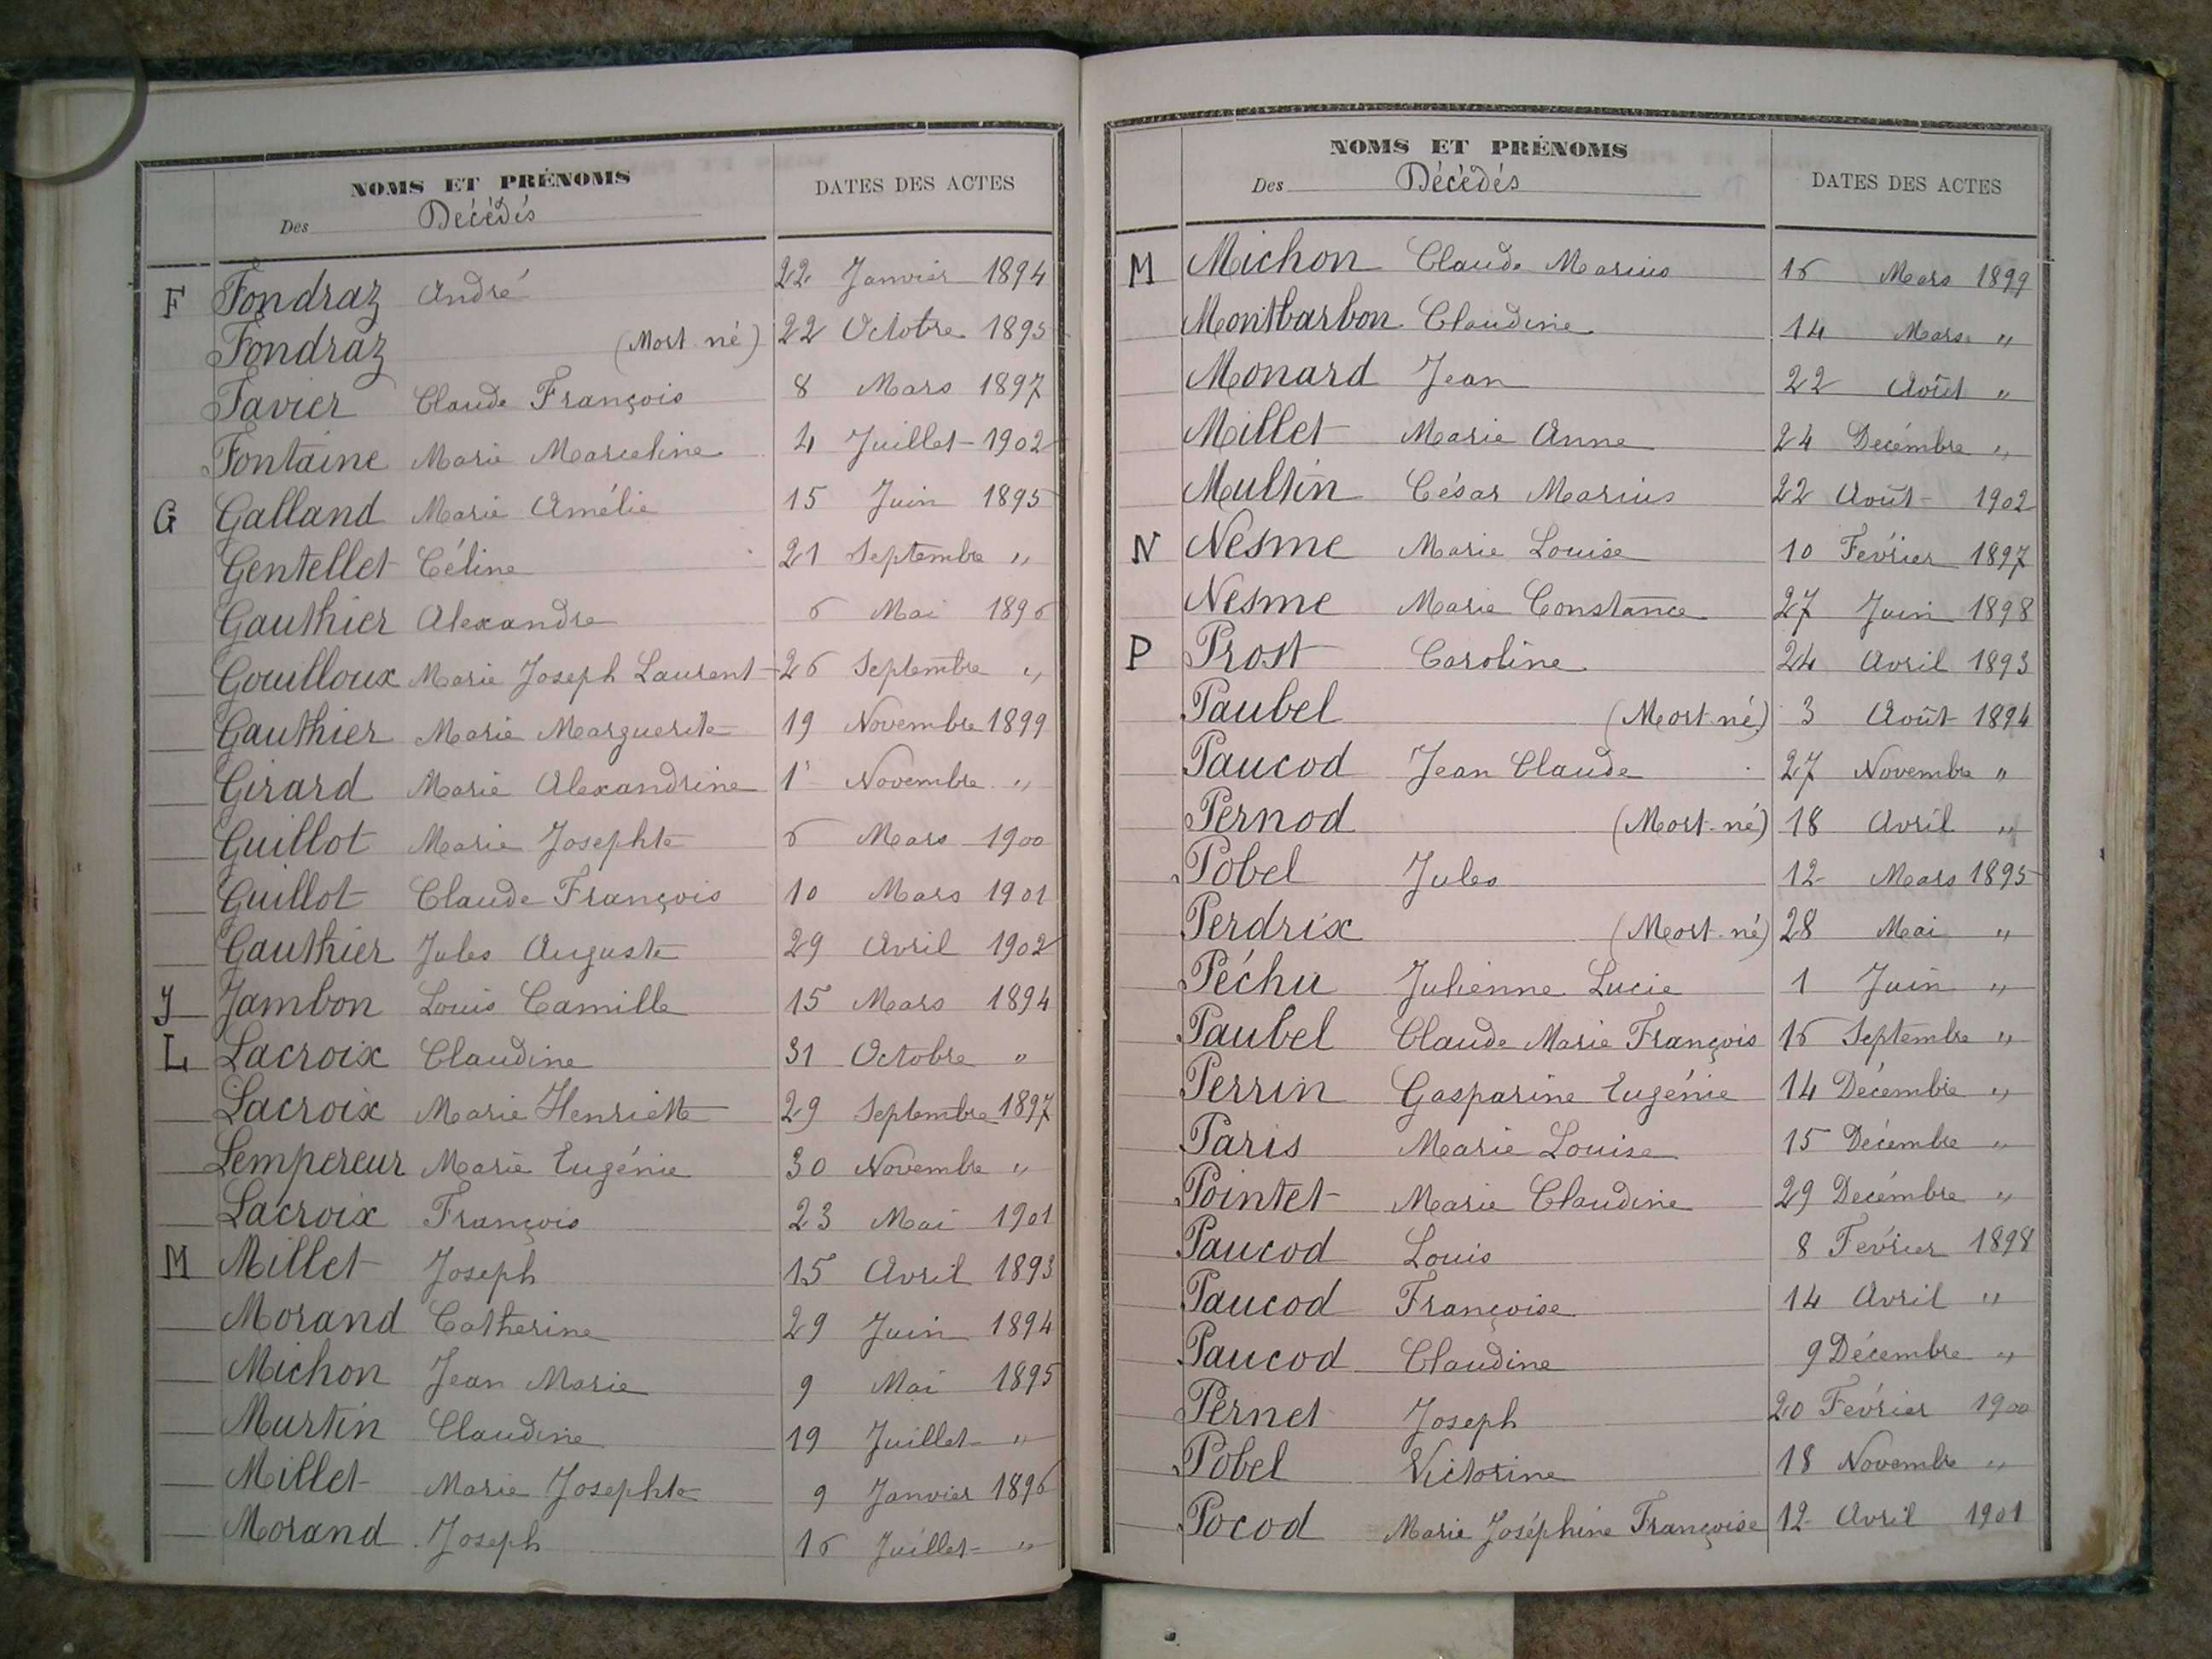 NOMS ET PRÉNOMS
Des Décédés
DATES DES ACTES
F Fondraz André 22 Janvier 1894
Fondraz (Mort né) 22 Octobre 1895
Favier Claude François 8 Mars 1897
Fontaine Marie Marceline 4 Juillet 1902
G Galland Marie Amélie 15 Juin 1895
Gentellet Céline 21 Septembre "
Gauthier Alexandre 6 Mai 1896
Gouilloux Marie Joseph Laurent 26 Septembre "
Gauthier Marie Marguerite 19 Novembre 1899
Girard Marie Alexandrine 1r Novembre "
Guillot Marie Josephte 6 Mars 1900
Guillot Claude François 10 Mars 1901
Gauthier Jules Auguste 29 Avril 1902
J Jambon Louis Camille 15 Mars 1894
L Lacroix Claudine 31 Octobre "
Lacroix Marie Henriette 29 Septembre 1897
Lempereur Marie Eugénie 30 Novembre "
Lacroix François 23 Mai 1901
M Millet Joseph 15 Avril 1893
Morand Catherine 29 Juin 1894
Michon Jean Marie 9 Mai 1895
Murtin Claudine 19 Juillet "
Millet Marie Josephte 9 Janvier 1896
Morand Joseph 16 Juillet "
NOMS ET PRÉNOMS
Des Décédés
DATES DES ACTES
M Michon Claude Marius 16 Mars 1899
Montbarbon Claudine 14 Mars "
Monard Jean 22 Août "
Millet Marie Anne 24 Decémbre "
Multin César Marius 22 Août 1902
N Nesme Marie Louise 10 Fevrier 1897
Nesme Marie Constance 27 Juin 1898
P Prost Caroline 24 Avril 1893
Paubel (Mort né) 3 Août 1894
Paucod Jean Claude 27 Novembre "
Pernod (Mort-né) 18 Avril "
Pobel Jules 12 Mars 1895
Perdrix (Mort-né) 28 Mai "
Péchu Julienne Lucie 1 Juin "
Paubel Claude Marie François 16 Septembre "
Perrin Gasparine Eugénie 14 Décembre "
Paris Marie Louise 15 Décembre "
Pointet Marie Claudine 29 Decémbre "
Paucod Louis 8 Février 1898
Paucod Françoise 14 Avril "
Paucod Claudine 9 Décembre "
Pernet Joseph 20 Février 1900
Pobel Victorine 18 Novembre "
Pocod Marie Joséphine Françoise 12 Avril 1901